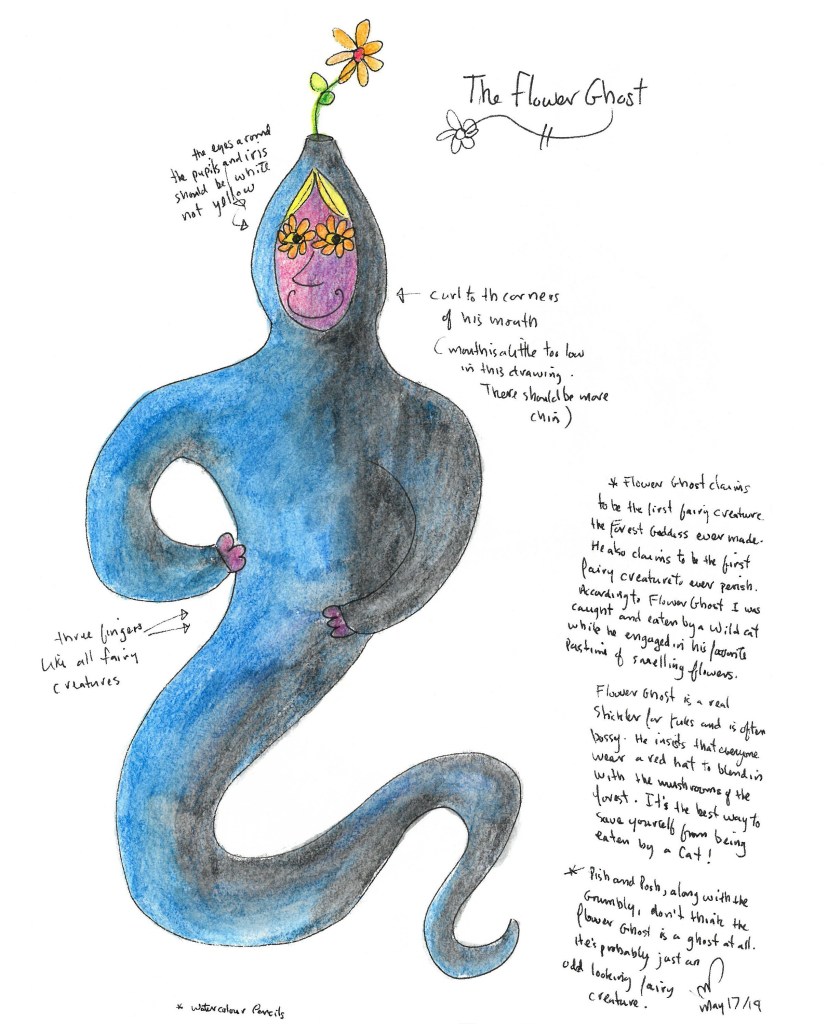 The Flower Ghost
the eyes around
the pupils and iris
should be white
not yellow
curl to th corners
of his mouth
(mouth is a little too low
in this drawing.
There should be more
chin)
three fingers
like all fairy
creatures
* Flower Ghost claims
to be the first fairy creature
the Forest Goddess ever made.
He also claims to be the first
fairy creature to ever perish.
According to Flower Ghost I was
caught and eaten by a wild cat
while he engaged in his favorite
Pastime of smelling flowers.
Flower Ghost is a real
Stickler for rules and is often
bossy. He insists that everyone
wear a red hat to blend in
with the mushrooms of the
forest. It's the best way to
save yourself from being
eaten by a Cat!
* Pish and Posh, along with the
Grumbly, don't think the
Flower Ghost is a ghost at all.
He's probably just an
odd looking fairy
creature.
May 17/19
* watercolour Pencils